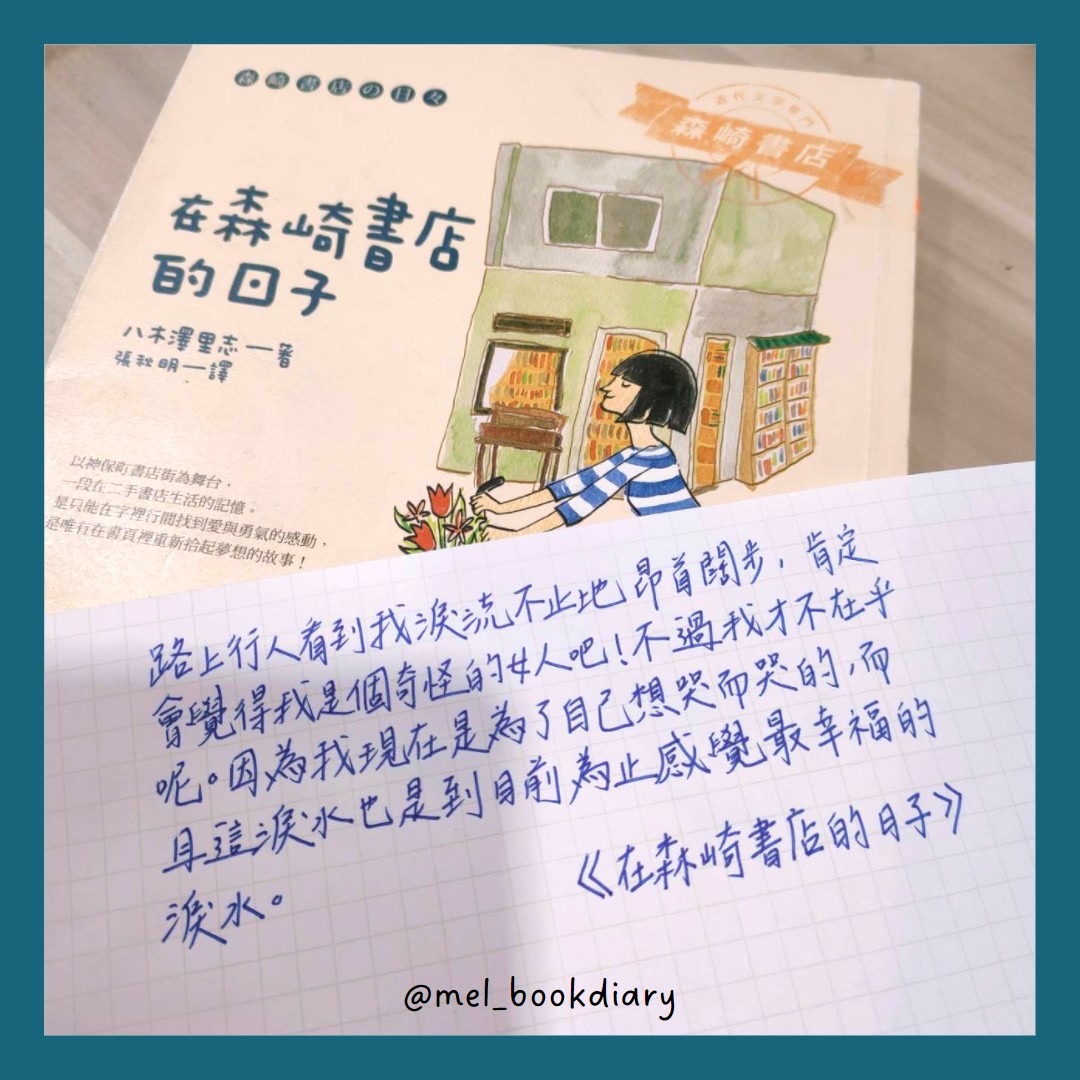 森崎書店の日々
近代文学専門
森崎書店
在森崎書店
的日子
八木澤里志—著
張秋明—譯
以神保町書店街為舞台,
一段在二手書店生活的記憶。
是只能在字裡行間找到愛與勇氣的感動,
是唯有在書頁裡重新拾起夢想的故事!
路上行人看到我淚流不止地昂首闊步,肯定
會覺得我是個奇怪的女人吧!不過我才不在乎
呢。因為我現在是為了自己想哭而哭的,而
且這淚水也是到目前為止感覺最幸福的
淚水。
《在森崎書店的日子》
@mel_bookdiary